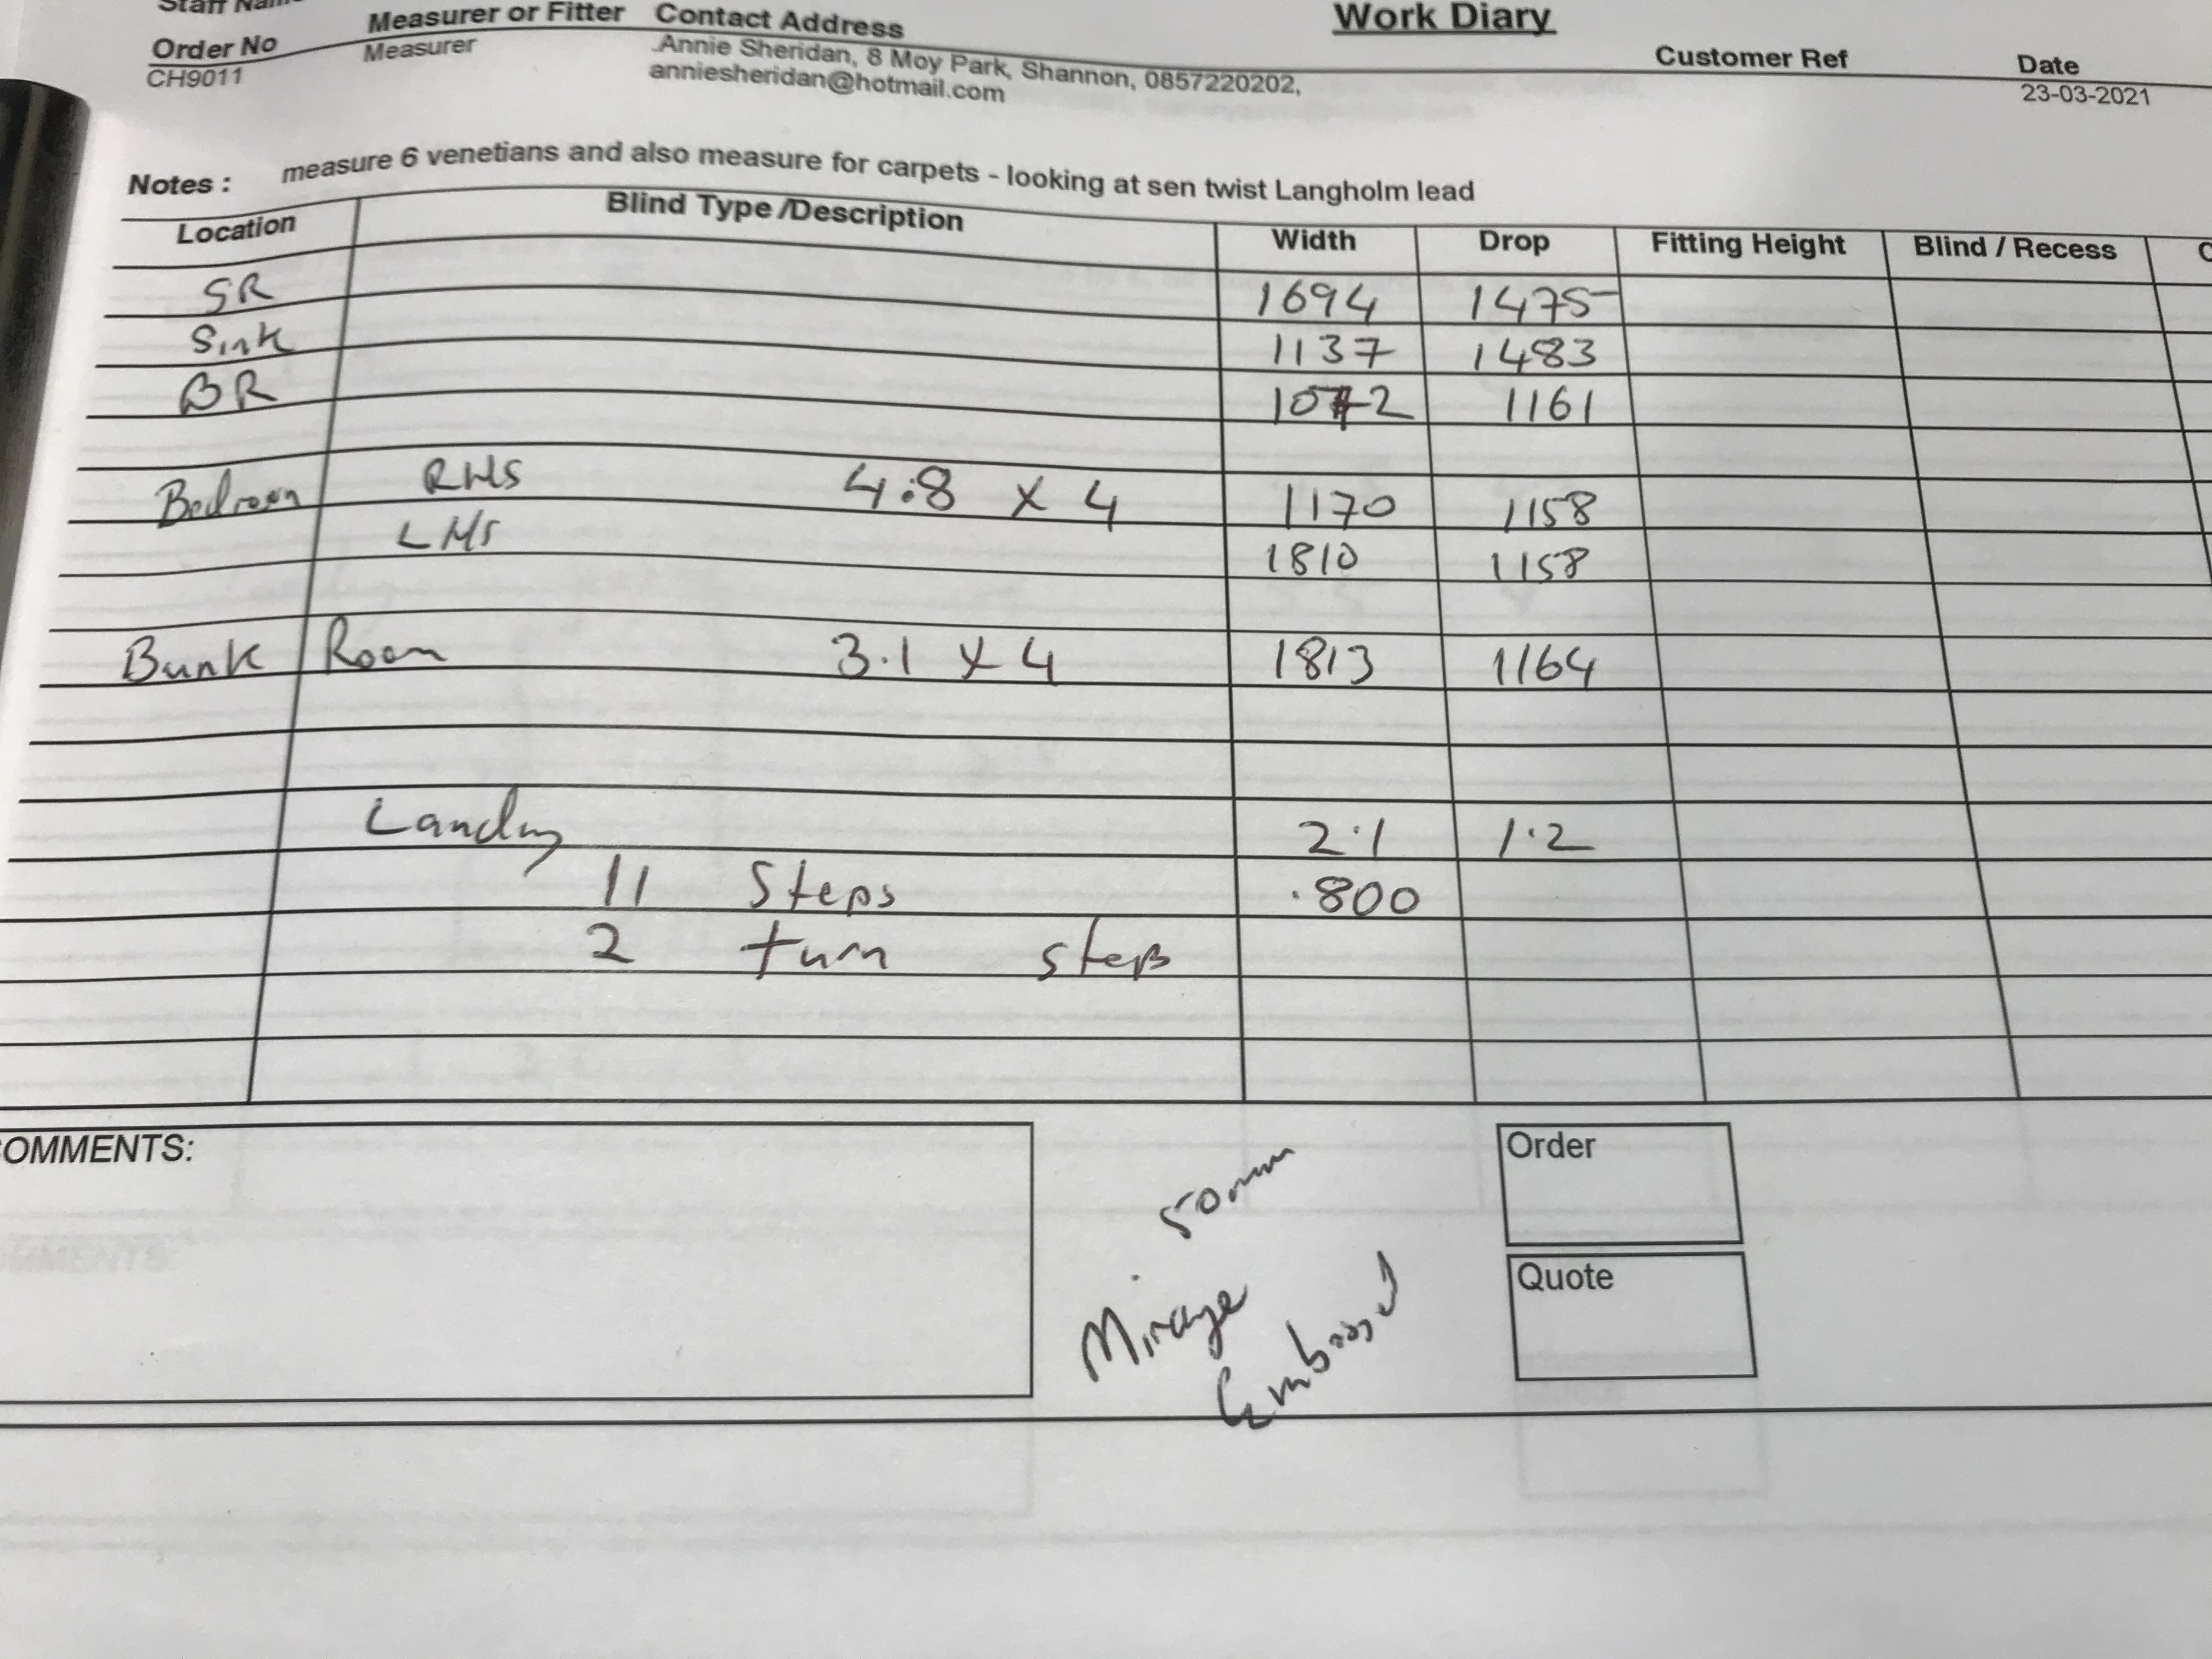 Work Diary
Measurer or Fitter Contact Address
Order No Measurer .Annie Sheridan, 8 Moy Park, Shannon, 0857220202, Customer Ref Date
CH9011 anniesheridan@hotmail.com 23-03-2021
Notes : measure 6 venetians and also measure for carpets - looking at sen twist Langholm lead
Location Blind Type /Description Width Drop Fitting Height Blind / Recess
SR 1694 1475
Sink 1137 1483
BR 1161
Bedroom RHS 4.8 x 4 1170 1158
LHS 1810 1158
Bunk Room 3.1 x 4 1813 1164
Landing 2.1 1.2
11 Steps .800
2 turn steps
OMMENTS:
50mm
Mirage
Embossed
Order
Quote